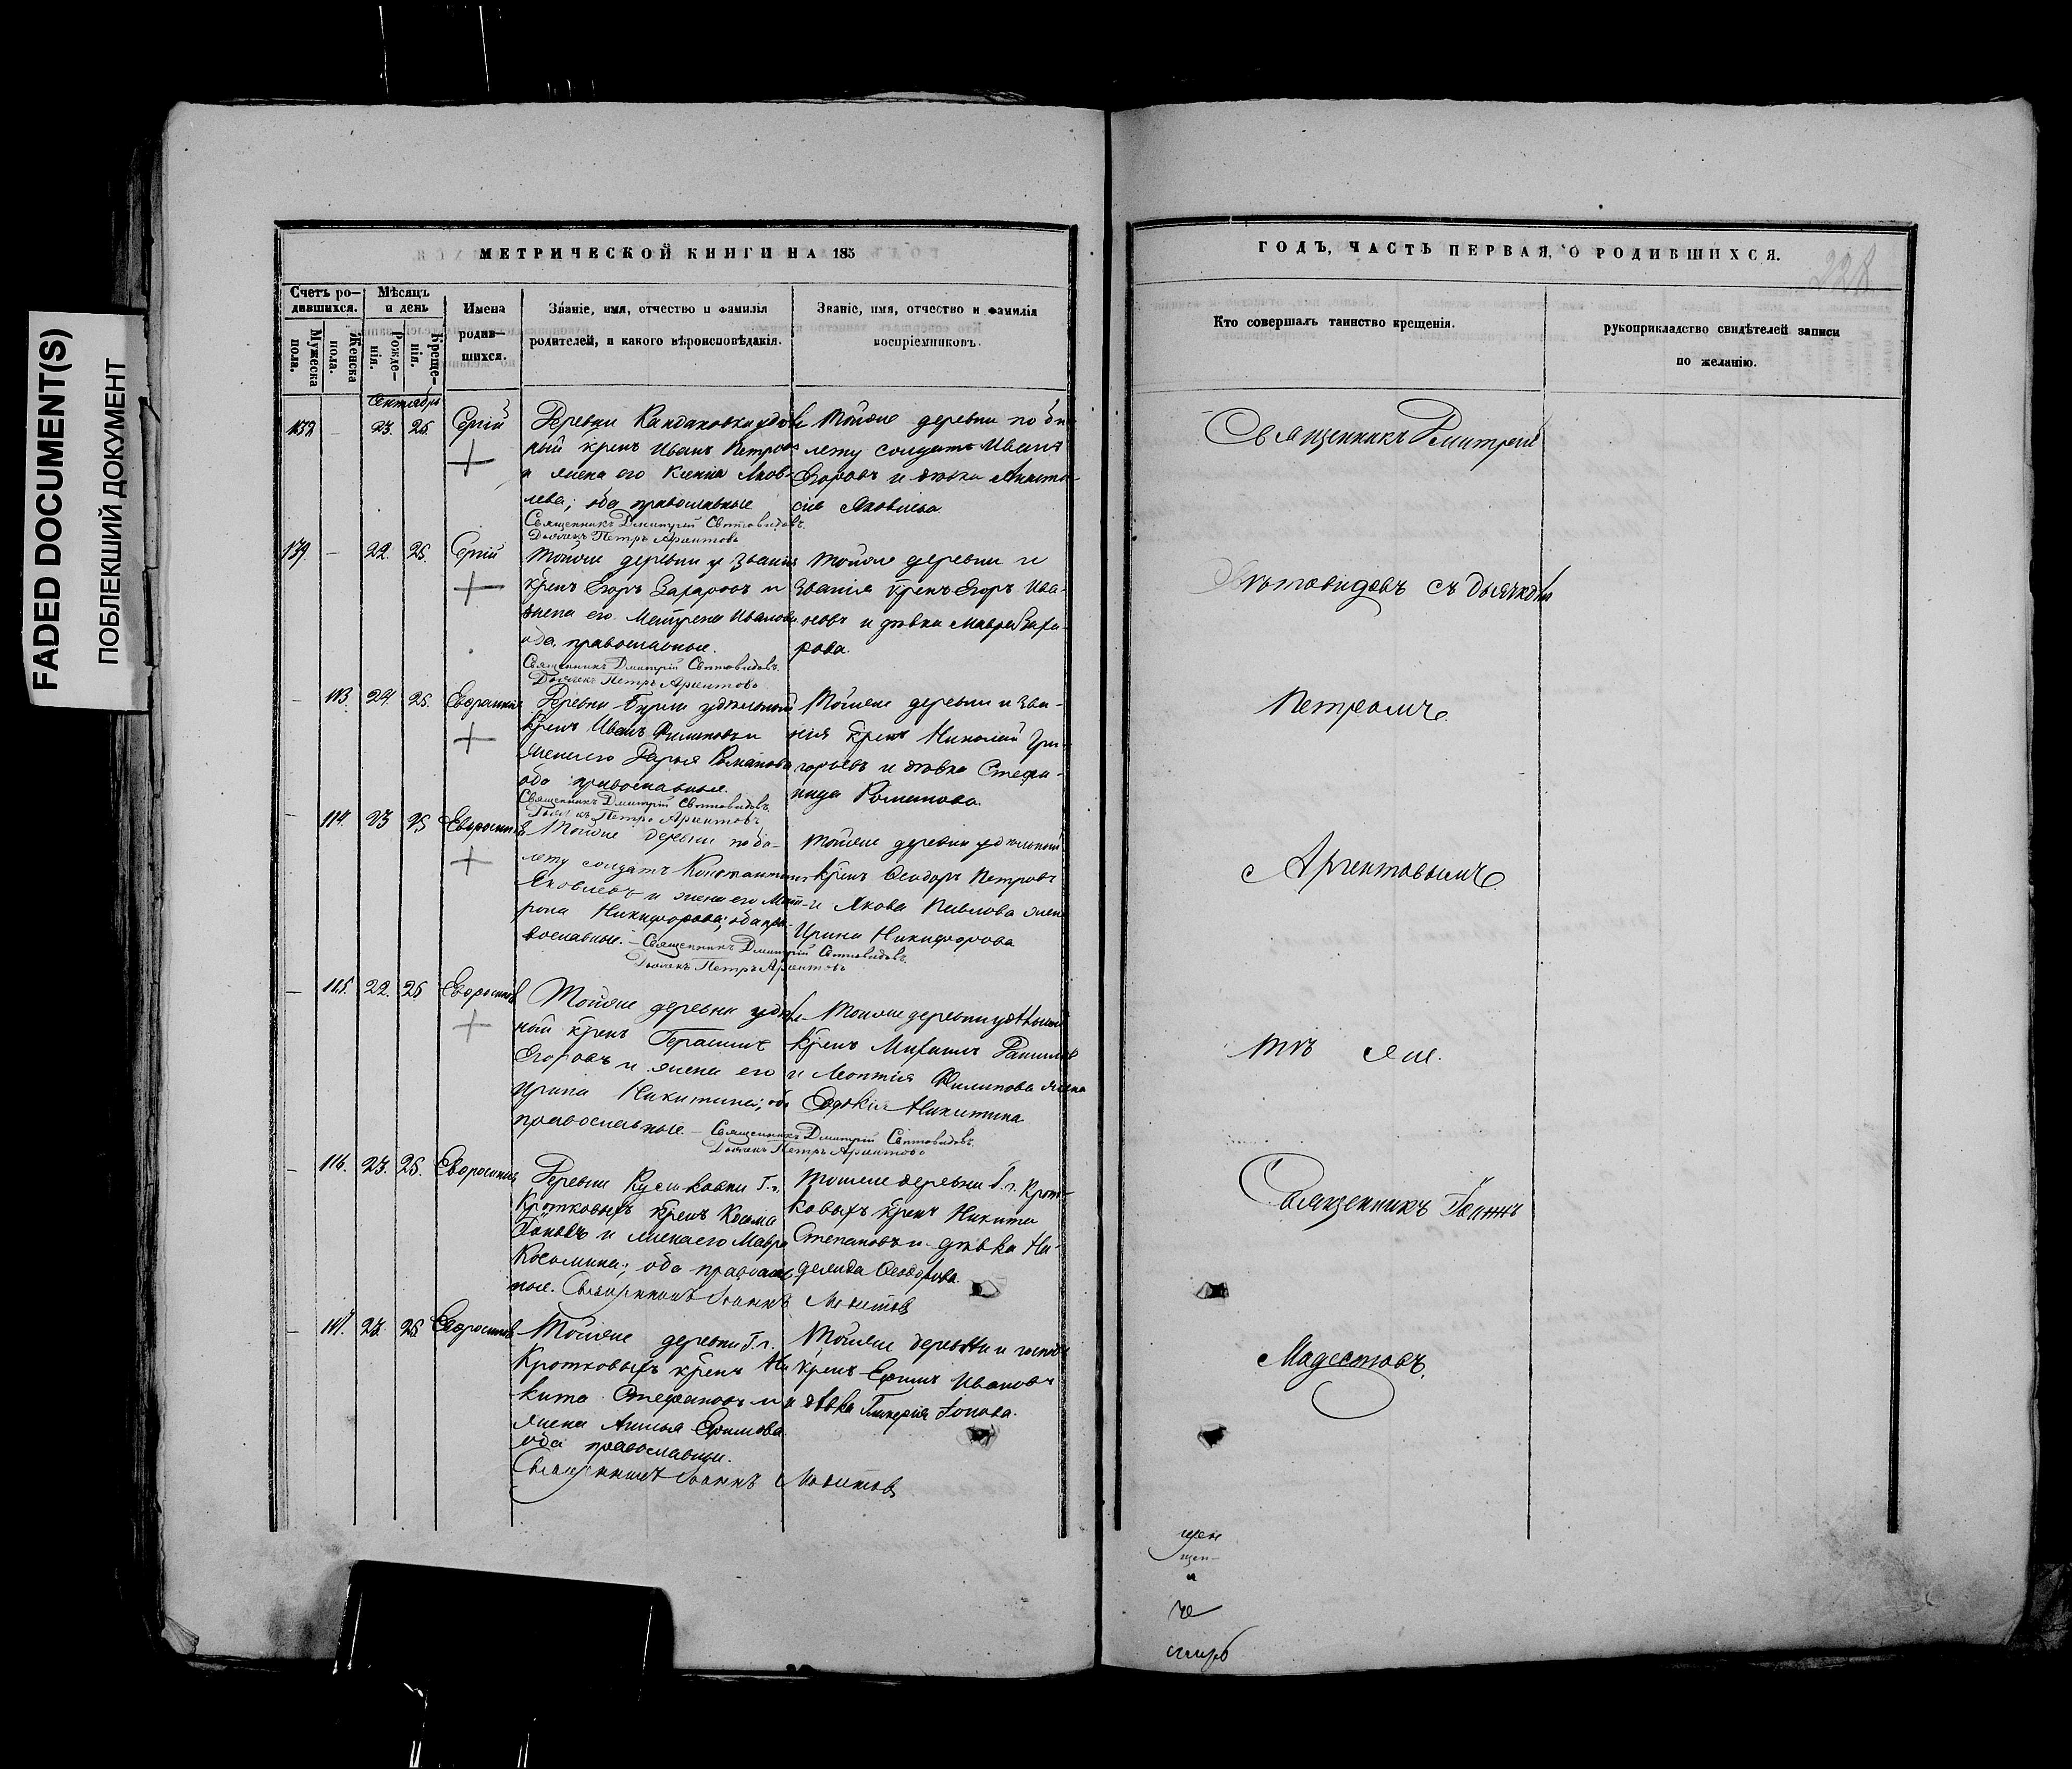 FADED DOCUMENT(S)
ПОБЛЕКШИЙ ДОКУМЕНТ
МЕТРИЧЕСКОЙ КНИГИ НА 185
Счетъ ро-
дившихся.
Мужеска пола.
Женска пола.
Мѣсяцъ
и день
Рожде-
нія.
Креще-
нія.
Имена
родив-
шихся.
Званіе, имя, отчество и фамилія
родителей, и какого вѣроисповѣданія.
Званіе, имя, отчество и фамилія
воспріемниковъ.
Сентябрь
23. 25. Сергій
Деревни Кандаковки удѣль
ный крен Иванъ Петровъ
и жена его Ксенія Яков-
лева; оба православные
Священникъ Дмитрій Свѣтовидовъ.
Дьячекъ Петръ Аргентовъ
Тойже деревни по би-
лету солдатъ Иванъ
Егоровъ и дѣвка Анаста-
сія Яковлева
139. 22. 25. Сергій
Тойже деревни и званія
крен Егоръ Захаровъ и
жена его Матрена Иванова
оба православные.
Священникъ Дмитрій Свѣтовидовъ.
Дьячекъ Петръ Аргентовъ
Тойже деревни и
званія крен Егоръ Ива-
новъ и дѣвка Мавра Заха-
рова.
113. 24. 25. Евфросинія
Деревни удѣльный
крен Иванъ Филиповъ и
жена его Дарья Романова
оба православные.
Священникъ Дмитрій Свѣтовидовъ.
Дьячекъ Петръ Аргентовъ
Тойже деревни и зва-
нія крен Николай Гри-
горьевъ и дѣвка Степа-
нида Романова.
114. 23 25 Евфросинія
Тойже деревни по би-
лету солдатъ Константинъ
Яковлевъ и жена его Мат-
рона Никифорова; оба пра-
вославные. - Священникъ Дмитрій Свѣтовидовъ.
Дьячекъ Петръ Аргентовъ
Тойже деревни удѣльный
крен Ѳеодоръ Петровъ
и Якова Павлова жена
Ирина Никифорова
115. 22. 25 Евфросинія
Тойже деревни удѣль
ный крен Герасимъ
Егоровъ и жена его
Ирина Никитина; оба
православные. - Священникъ Дмитрій Свѣтовидовъ.
Дьячекъ Петръ Аргентовъ
Тойже деревни удѣльный
крен Михаилъ Даниловъ
и Леонтія Филипова жена
Евдокія Никитина
116. 23. 25. Евфросинія
Деревни Г. г.
Кротковыхъ крен Косма
Іоновъ и жена его Мавра
Космина; оба православ
ные. Священникъ Іоаннъ
Тойже деревни Г. г. Крот-
ковыхъ крен Никита
Степановъ и дѣвка На-
дежда Ѳеодорова
117. 23. 25. Евфросинія
Тойже деревни Г. г.
Кротковыхъ крен Ни
кита Стефановъ и
жена Ефимова
оба православные.
Священникъ Іоаннъ
Тойже деревни
крен Ефимъ Ивановъ
и дѣвка Гликерія Іонова.
ГОДЪ, ЧАСТЬ ПЕРВАЯ, О РОДИВШИХСЯ.
228
Кто совершалъ таинство крещенія.
рукоприкладство свидѣтелей записи
по желанію.
Священникъ Дмитрій
Свѣтовидовъ съ дьячкомъ
Петромъ
Аргентовымъ
Тѣ же.
Священникъ Іоаннъ
Модестовъ.